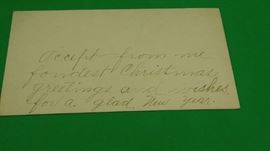 Accept from me
fondest Christmas
greetings and wishes
for a glad New Year.